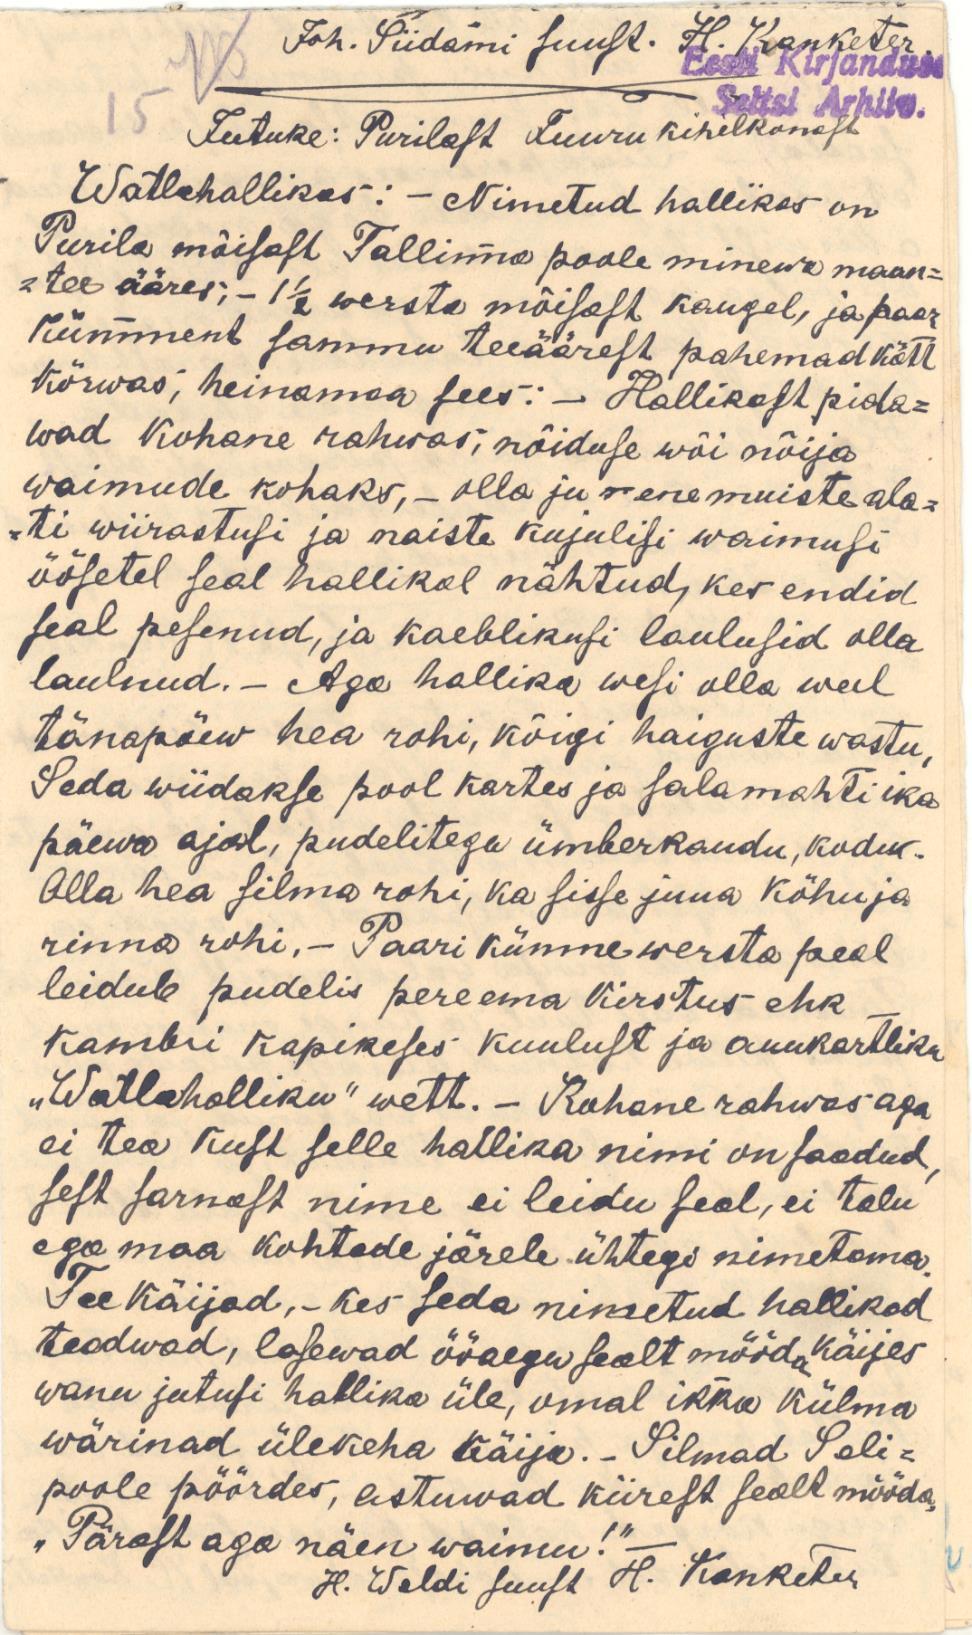 Joh. Südami suust. H. Kanketer.
Eesti Kirjanduse
Seltsi Arhiiv.
15
Jutuke: Purilast Juuru kihelkonast
Watlahallikas: - Nimetud hallikas on
Purila mõisast Tallinna poole minewa maan=
=tee ääres; - 1½ wersta mõisast kaugel, ja paar
kümment sammu teeäärest pahemad kätt
kõrwas, heinamaa sees: - Hallikast pida=
wad kohane rahwas, nõiduse wõi nõija
waimude kohaks, - olla ju ene muiste ala=
=ti wiirastusi ja naiste kujulisi waimusi
öösetel seal hallikal nähtud, kes endid
seal pesenud, ja kaeblikusi laulusid olla
laulnud. - Aga hallika wesi olla weel
tänapäew hea rohi, kõigi haiguste wastu,
Seda wiidakse pool kartes ja salamahti ika
päewa ajal, pudelitega ümberkaudu, kodu.
Olla hea silma rohi, ka sisse juua kõhu ja
rinna rohi. - Paari kümne wersta peal
leidub pudelis pereema kirstus ehk
kambri kapikeses kuulust ja auukartliku
„Watlahalliku" wett. - Kohane rahwas aga
ei tea kust selle hallika nimi on saadud,
sest sarnast nime ei leidu seal, ei talu
ega maa kohtade järele ühtegi nimetama.
Tee käijad, - kes seda nimetud hallikad
teadwad, lasewad ööaegu sealt mööda käijes
wanu jutusi hallika üle, omal ikka külma
wärinad ülekeha käija. - Silmad Seli=
poole pöördes, astuwad kiirest sealt mööda,
„Pärast aga näen waimu!" -
H. Weldi suust H. Kanketer